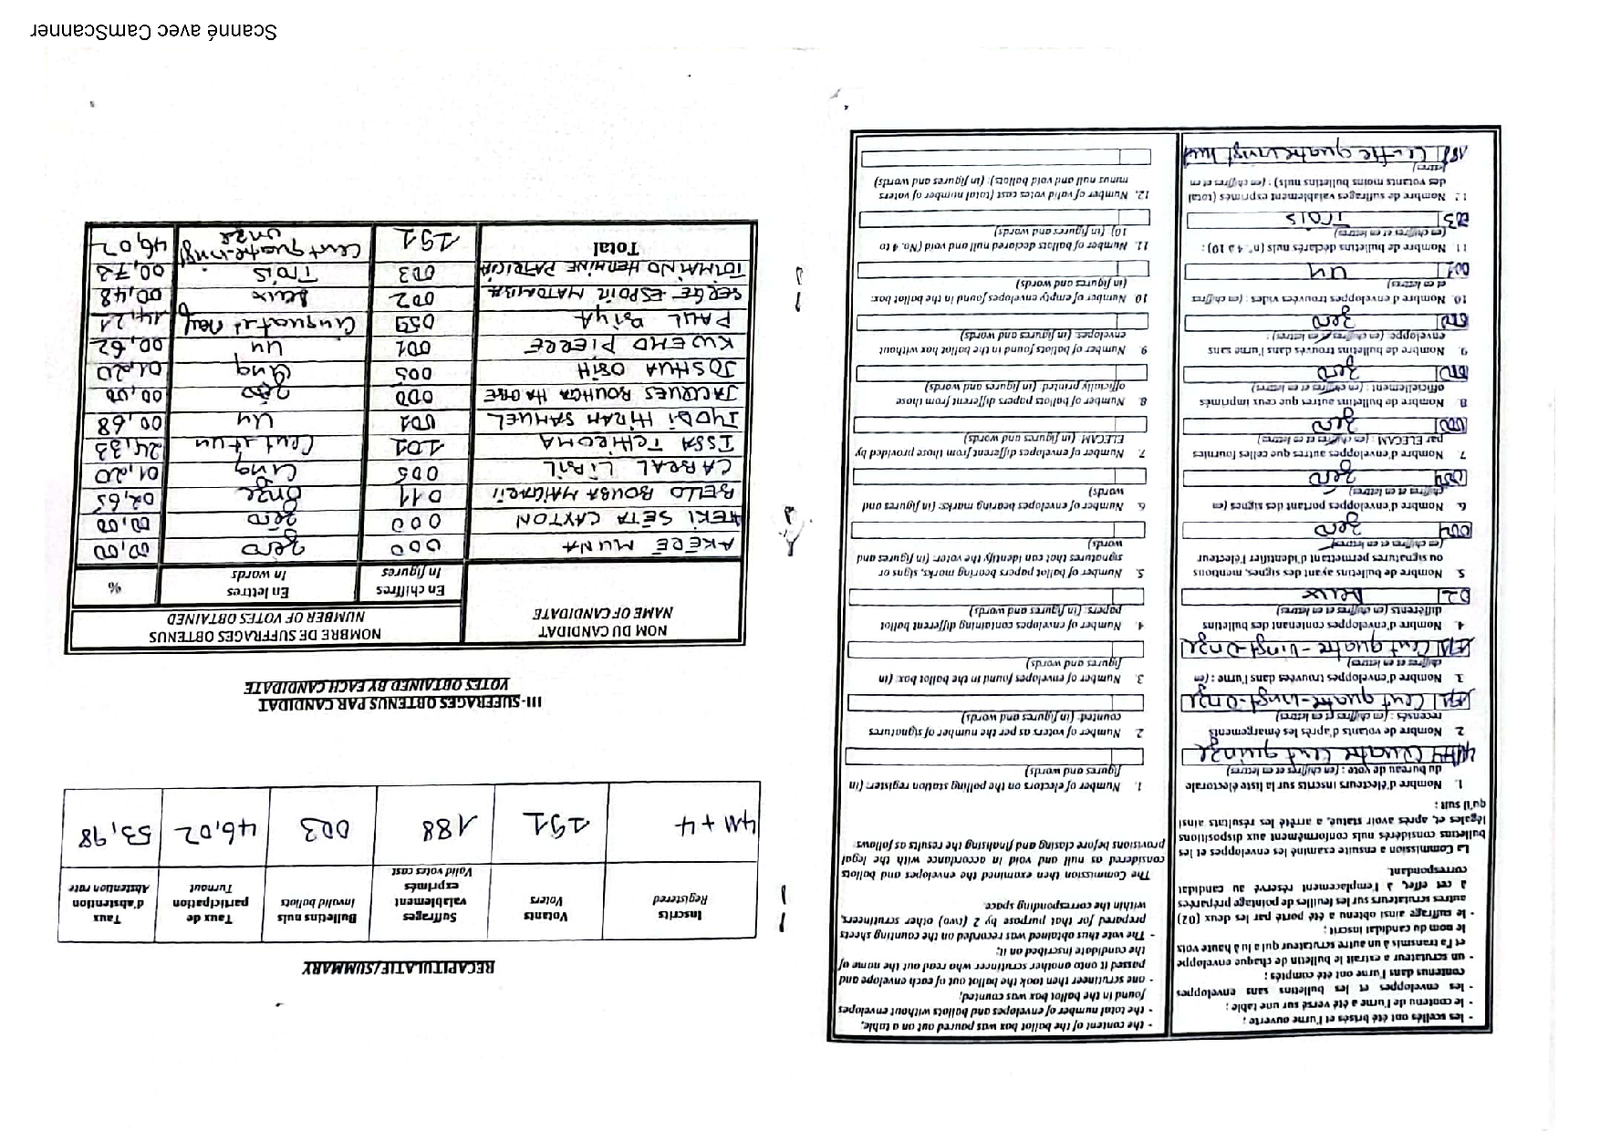 - les scellés ont été brisés et l'urne ouverte ;
- le contenu de l'urne a été versé sur une table ;
- les enveloppes et les bulletins sans enveloppes
contenus dans l'urne ont été comptés ;
- un scrutateur a extrait le bulletin de chaque enveloppe
et l'a transmis à un autre scrutateur qui a lu à haute voix
le nom du candidat inscrit ;
- le suffrage ainsi obtenu a été porté par les deux (02)
autres scrutateurs sur les feuilles de pointage préparées
à cet effet, à l'emplacement réservé au candidat
correspondant.
La Commission a ensuite examiné les enveloppes et les
bulletins considérés nuls conformément aux dispositions
légales et, après avoir statué, a arrêté les résultats ainsi
qu'il suit :
1. Nombre d'électeurs inscrits sur la liste électorale
du bureau de vote : (en chiffres et en lettres)
Quatre cent quinze
2. Nombre de votants d'après les émargements
recensés : (en chiffres et en lettres)
Cent quatre-vingt-onze
3. Nombre d'enveloppes trouvées dans l'urne : (en
chiffres et en lettres)
Cent quatre-vingt-onze
4. Nombre d'enveloppes contenant des bulletins
différents (en chiffres et en lettres)
02 Deux
5. Nombre de bulletins ayant des signes, mentions
ou signatures permettant d'identifier l'électeur
(en chiffres et en lettres)
zero
6. Nombre d'enveloppes portant des signes (en
chiffres et en lettres)
zero
7 Nombre d'enveloppes autres que celles fournies
par ELECAM : (en chiffres et en lettres)
000 zero
8 Nombre de bulletins autres que ceux imprimés
officiellement : (en chiffres et en lettres)
000 zero
9. Nombre de bulletins trouvés dans l'urne sans
enveloppe (en chiffres et en lettres) :
000 zero
10. Nombre d'enveloppes trouvées vides : (en chiffres
et en lettres)
001 un
11 Nombre de bulletins déclarés nuls (n° 4 à 10) :
(en chiffres et en lettres)
003 Trois
12 Nombre de suffrages valablement exprimés (total
des votants moins bulletins nuls) : (en chiffres et en
lettres)
188 quatre vingt huit
- the content of the ballot box was poured out on a table,
- the total number of envelopes and ballots without envelopes
found in the ballot box was counted;
- one scrutineer then took the ballot out of each envelope and
passed it onto another scrutineer who read out the name of
the candidate inscribed on it;
- The vote thus obtained was recorded on the counting sheets
prepared for that purpose by 2 (two) other scrutineers,
within the corresponding space.
The Commission then examined the envelopes and ballots
considered as null and void in accordance with the legal
provisions before closing and finalising the results as follows:
1. Number of electors on the polling station register: (in
figures and words)
2 Number of voters as per the number of signatures
counted: (in figures and words)
3. Number of envelopes found in the ballot box: (in
figures and words)
4. Number of envelopes containing different ballot
papers: (in figures and words)
5. Number of ballot papers bearing marks, signs or
signatures that can identify the voter: (in figures and
words)
6 Number of envelopes bearing marks: (in figures and
words)
7. Number of envelopes different from those provided by
ELECAM: (in figures and words)
8. Number of ballots papers different from those
officially printed: (in figures and words)
9. Number of ballots found in the ballot box without
envelopes: (in figures and words)
10 Number of empty envelopes found in the ballot box:
(in figures and words)
11. Number of ballots declared null and void (No. 4 to
10): (in figures and words)
12. Number of valid votes cast (total number of voters
minus null and void ballots): (in figures and words)
RECAPITULATIF/SUMMARY
Inscrits Registered
Votants Voters
Suffrages valablement exprimés Valid votes cast
Bulletins nuls Invalid ballots
Taux de participation Turnout
Taux d'abstention Abstention rate
411 + 4 191 188 003 46,02 53,98
III- SUFFRAGES OBTENUS PAR CANDIDAT
VOTES OBTAINED BY EACH CANDIDATE
NOM DU CANDIDAT
NAME OF CANDIDATE
NOMBRE DE SUFFRAGES OBTENUS
NUMBER OF VOTES OBTAINED
En chiffres In figures
En lettres In words
%
AKERE MUNA 000 zero 00,00
ATEKI SETA CAXTON 000 zero 00,00
BELLO BOUBA MAIGARI 011 onze 02,65
CABRAL LIBII 005 Cinq 01,20
ISSA TCHIROMA 101 Cent et un 24,33
IYODI HIRAM SAMUEL 001 un 00,68
JACQUES BOUHGA HAGBE 000 zéro 00,00
JOSHUA OSIH 005 Cinq 01,20
KWEMO PIERRE 001 un 00,62
PAUL BIYA 059 Cinquante neuf 14,21
SERGE ESPOIR MATOMBA 002 Deux 00,48
TOMAINO HERMINE PATRICIA 003 Trois 00,72
Total 191 Cent quatre-vingt onze 46,02
Scanné avec CamScanner